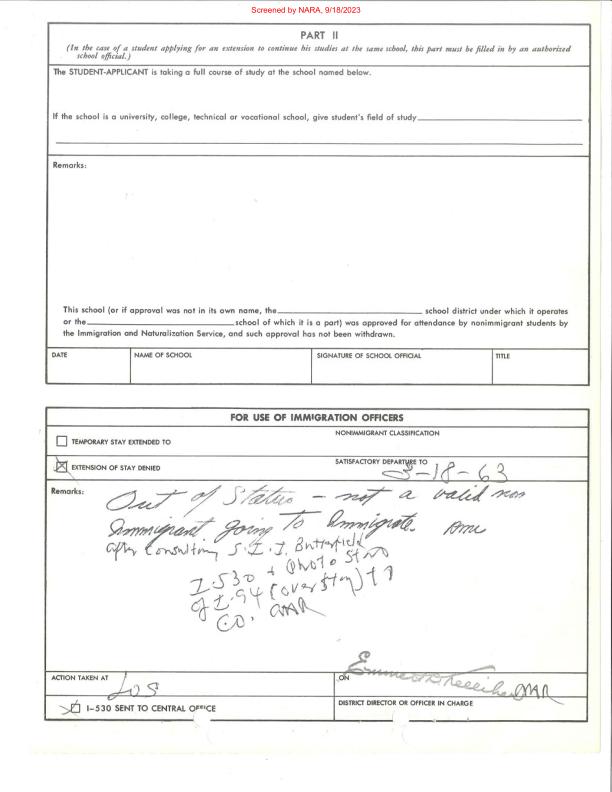 Screened by NARA, 9/18/2023
PART II
(In the case of a student applying for an extension to continue his studies at the same school, this part must be filled in by an authorized
school official.)
The STUDENT-APPLICANT is taking a full course of study at the school named below.
If the school is a university, college, technical or vocational school, give student's field of study
Remarks:
This school (or if approval was not in its own name, the school district under which it operates
or the school of which it is a part) was approved for attendance by nonimmigrant students by
the Immigration and Naturalization Service, and such approval has not been withdrawn.
DATE NAME OF SCHOOL SIGNATURE OF SCHOOL OFFICIAL TITLE
FOR USE OF IMMIGRATION OFFICERS
TEMPORARY STAY EXTENDED TO
NONIMMIGRANT CLASSIFICATION
EXTENSION OF STAY DENIED
SATISFACTORY DEPARTURE TO
3-18-63
Remarks:
Out of Status - not a valid non
Immigrant going to Immigrate.
after consulting S.I.I. Butterfield
I-530 + Photo Stats
of I-94 (overstay)
CO.
ACTION TAKEN AT LOS
ON
I-530 SENT TO CENTRAL OFFICE
DISTRICT DIRECTOR OR OFFICER IN CHARGE